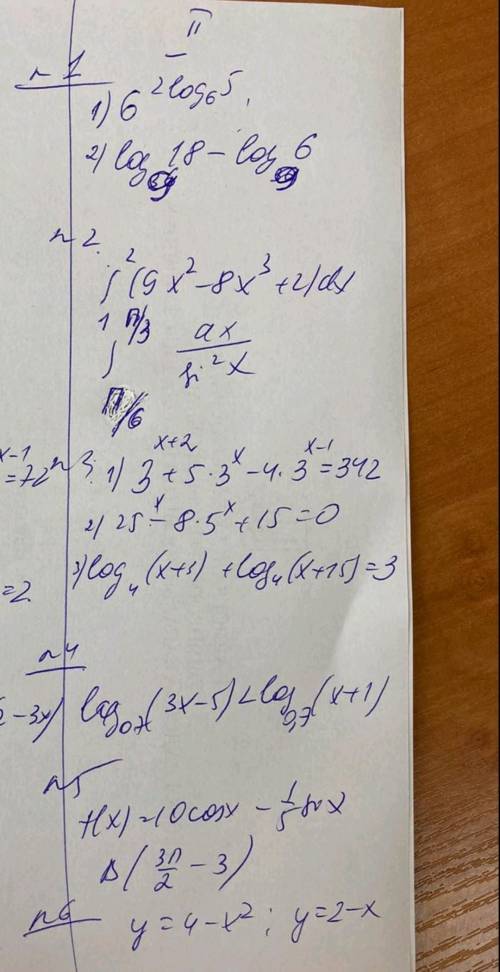 II
n 1
1) 6^{2log_6 5},
2) log_9 18 - log_9 6
n 2.
∫_1^2 (9x² - 8x³ + 2) dx
∫_{П/6}^{П/3} dx / sin² x
x-1
= 72
n 3. 1) 3^{x+2} + 5 · 3^x - 4 · 3^{x-1} = 342
2) 25^x - 8 · 5^x + 15 = 0
3) log_4 (x+3) + log_4 (x+15) = 3
= 2.
n 4
- 3x) log_{0,7} (3x-5) < log_{0,7} (x+1)
n 5
f(x) = 10 cos x - 1/5 sin x
(3П/2 - 3)
n 6 y = 4 - x² ; y = 2 - x